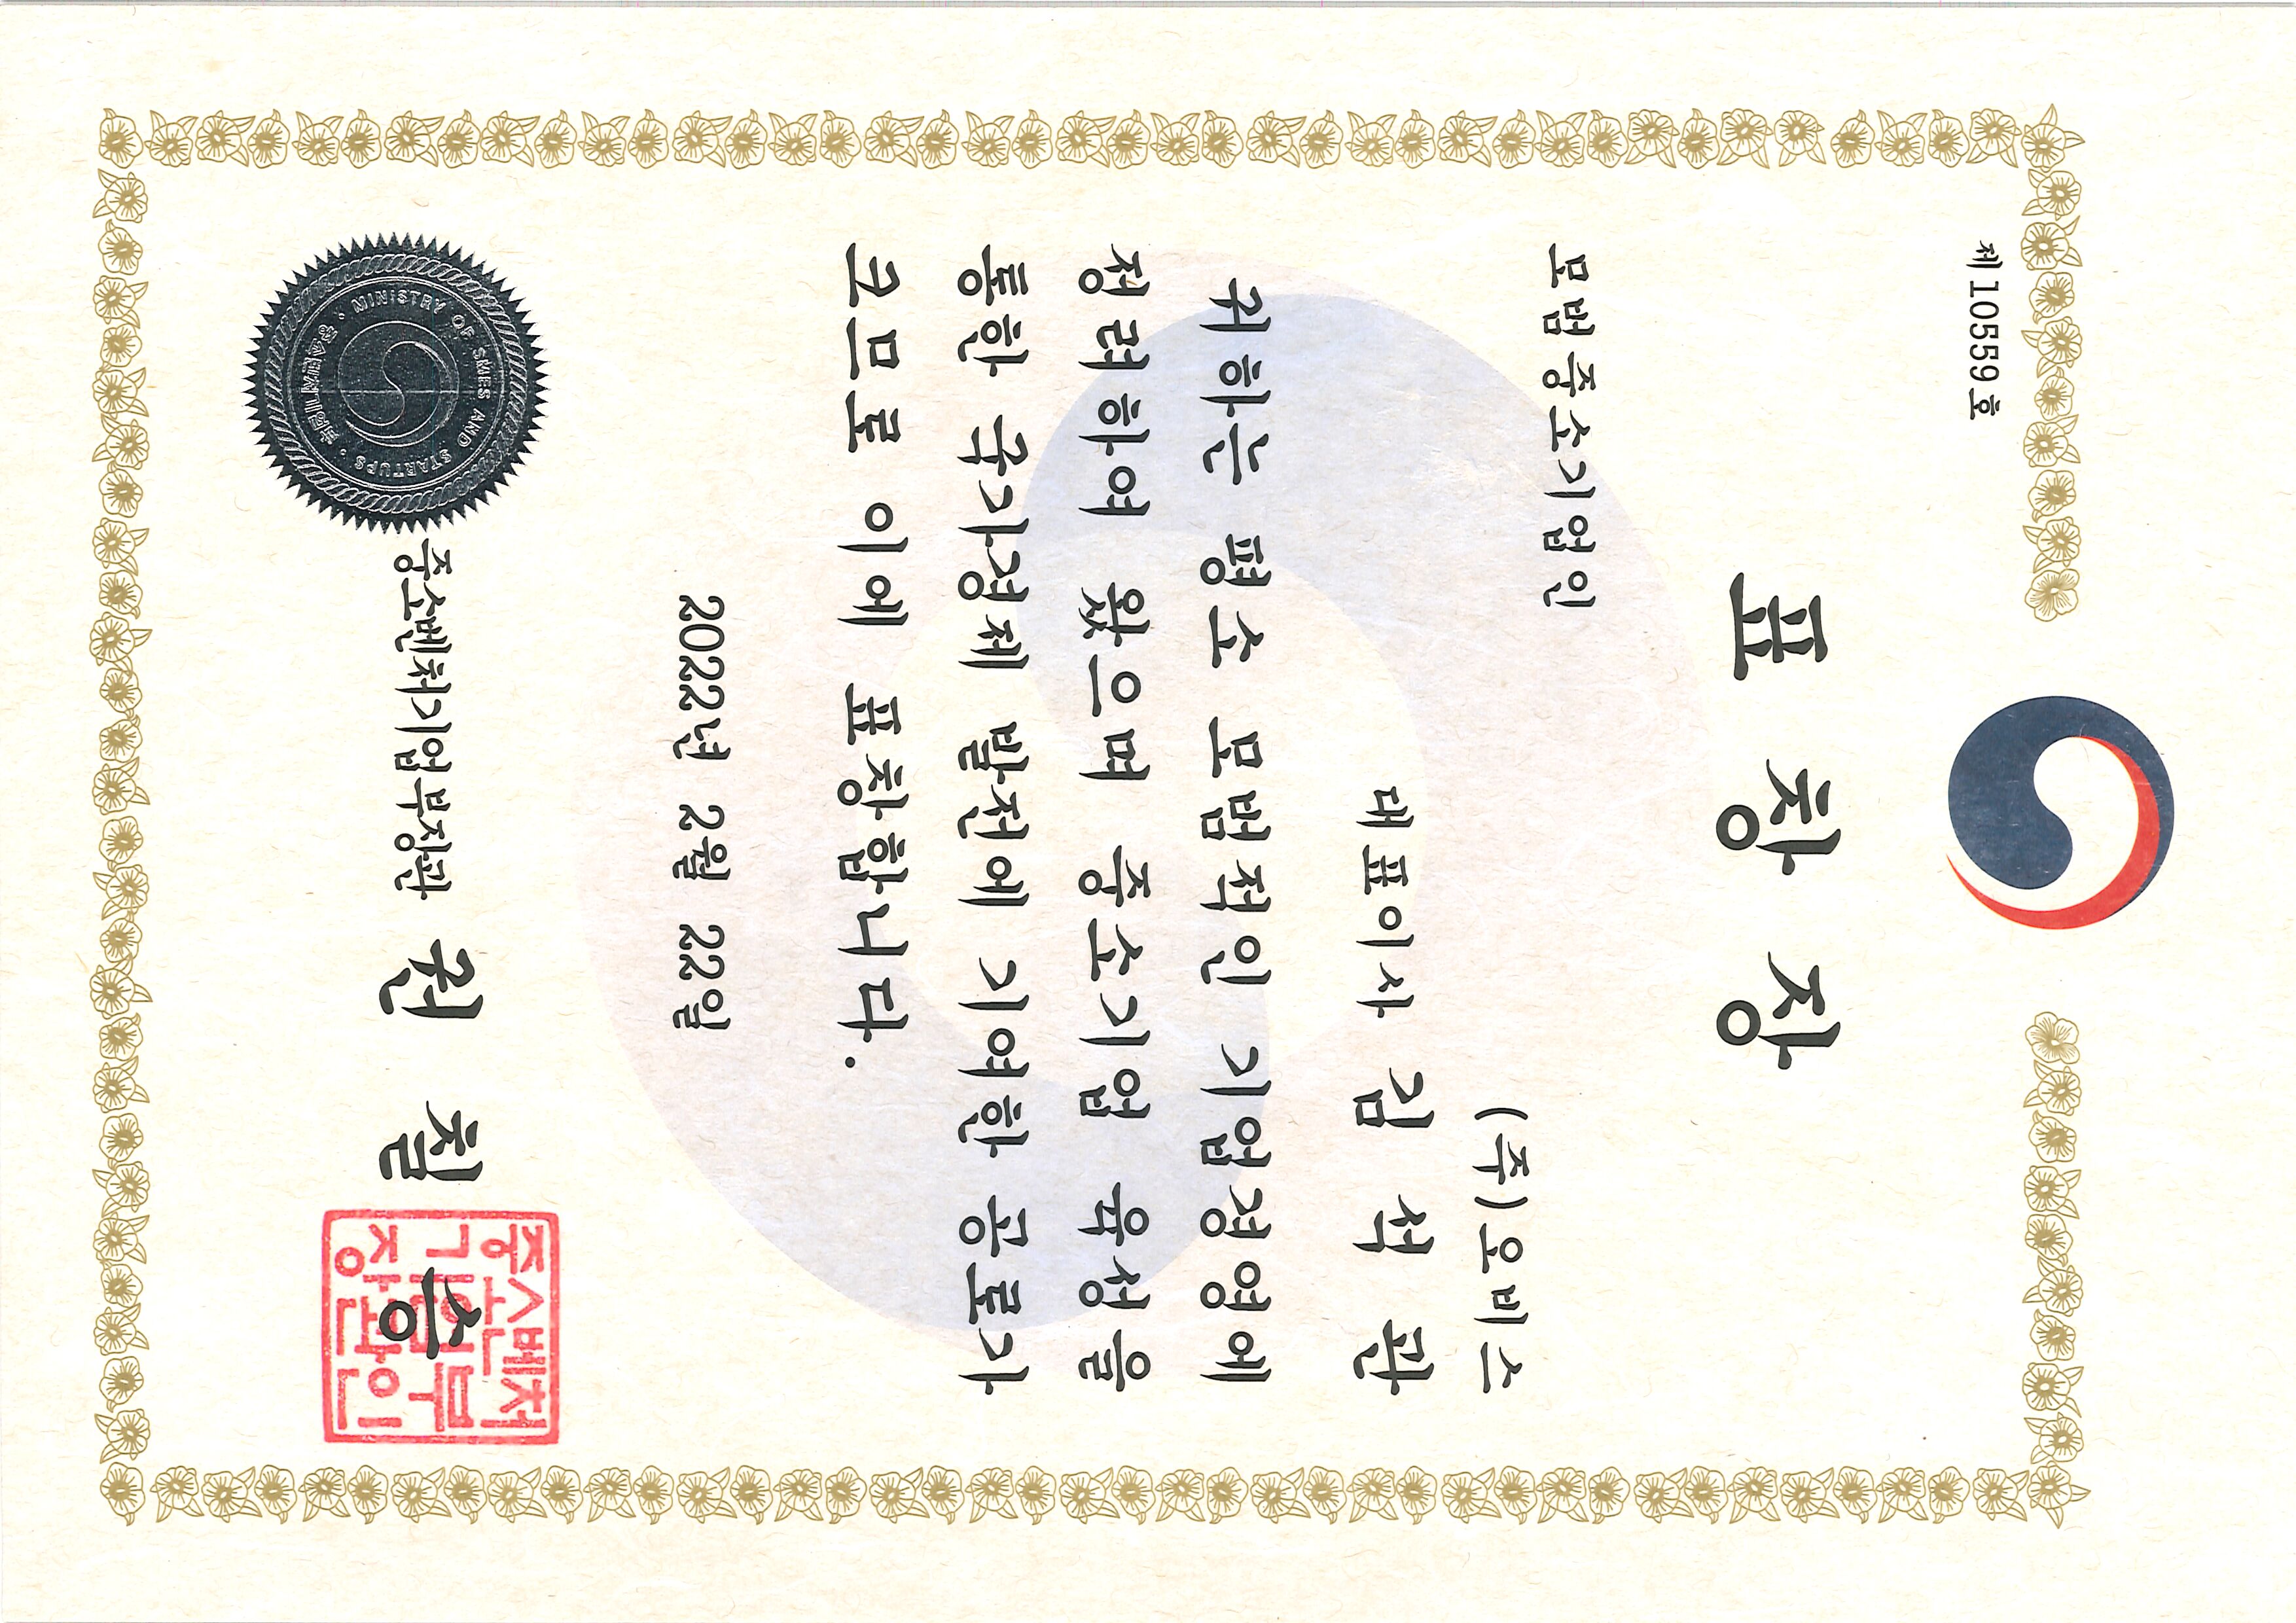 제10559호
표창장
모범중소기업인
(주)오비스
대표이사 김석관
귀하는 평소 모범적인 기업경영에
정려하여 왔으며 중소기업 육성을
통한 국가경제 발전에 기여한 공로가
크므로 이에 표창합니다.
2022년 2월 22일
중소벤처기업부장관 권칠승
중소벤처
기업부
장관인
MINISTRY OF SMES AND STARTUPS
중소벤처기업부